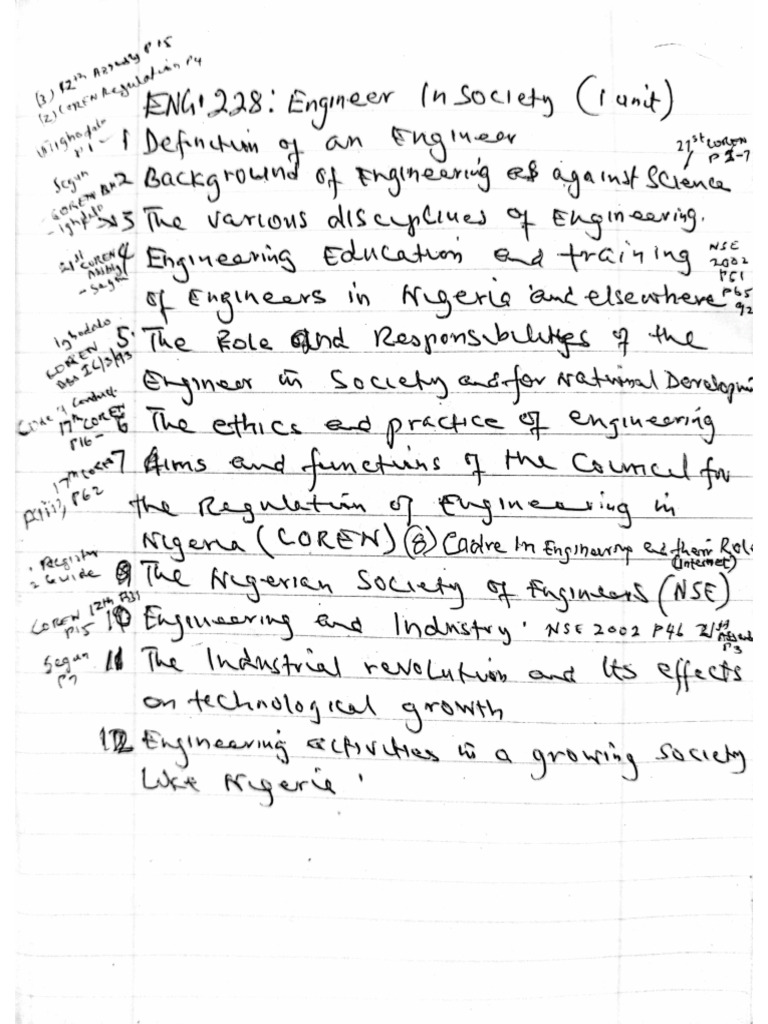 (3) 12th Assembly P15
(2) COREN Regulation P4
ENG. 228: Engineer In Society (1 unit)
P1 - 1 Definition of an Engineer
21st COREN
Segun 2 Background of Engineering as against Science
COREN
- Ighodalo 3 The various disciplines of Engineering.
21st COREN 4 Engineering Education and training NSE 2002 P61
- Segun of Engineers in Nigeria and elsewhere P65 92
Ighodalo 5. The Role and Responsibilities of the
COREN 26/3/93 Engineer in Society and for National Developm
Code of Conduct
17th COREN P16 - 6 The ethics and practice of engineering
17th COREN 7 Aims and functions of the Council for
P62 the Regulation of Engineering in
Nigeria (COREN) (8) Cadre in Engineering and their Role
(internet)
1. Register
2 Guide 9 The Nigerian Society of Engineers (NSE)
COREN 12th P15 10 Engineering and Industry. NSE 2002 P46 21st P3
Segun P7 11 The Industrial revolution and Its effects
on technological growth
12 Engineering activities in a growing society
Like Nigeria.